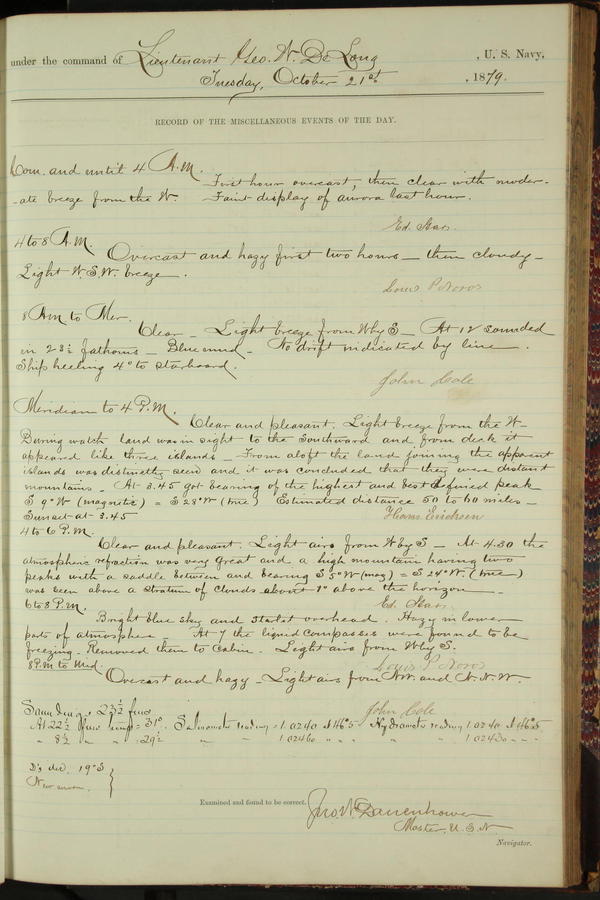 under the command of Lieutenant Geo. W. De Long, U. S. Navy,
Tuesday, October 21st, 1879.
RECORD OF THE MISCELLANEOUS EVENTS OF THE DAY.
Com. and until 4 A.M.
First hour overcast, then clear with moder-
-ate breeze from the W. Faint display of aurora last hour.
Ed. Starr
4 to 8 A.M.
Overcast and hazy first two hours — then cloudy —
Light W.S.W. breeze.
Louis P. Noros
8 AM to Mer.
Clear — Light breeze from W by S — At 12 sounded
in 23½ fathoms — Blue mud — No drift indicated by line.
Ship heeling 4° to starboard.
John Cole
Meridian to 4 P.M.
Clear and pleasant. Light breeze from the W —
During watch land was in sight to the southward and from deck it
appeared like three islands — From aloft the land joining the apparent
islands was distinctly seen and it was concluded that they were distant
mountains. At 3.45 got bearing of the highest and best defined peak
S 9° W (magnetic) = S 28° W (true) Estimated distance 50 to 60 miles —
Sunset at 3.45
Hans Erichsen
4 to 6 P.M.
Clear and pleasant. Light airs from W by S — At 4.30 the
atmospheric refraction was very great and a high mountain having two
peaks with a saddle between and bearing S 5° W (mag) = S 24° W. (true)
was seen above a stratum of clouds about 1° above the horizon
Ed. Starr
6 to 8 P.M.
Bright blue sky and starlit overhead. Hazy in lower
parts of atmosphere. At 7 the liquid compasses were found to be
freezing. Removed them to Cabin. Light airs from W by S.
Louis P. Noros
8 P.M. to Mid.
Overcast and hazy — Light airs from N.W. and N.N.W.
John Cole
Soundings 23½ fms
At 22½ fms temp = 31°. Salinometer reading = 1.0240 at 46°.5 Hydrometer reading 1.0240 at 46°.5
" 8½ " " 29½ " " 1.0240 " " " " 1.0240
19° S
Examined and found to be correct.
Jno. W. Danenhower
Master, U.S.N.
Navigator.